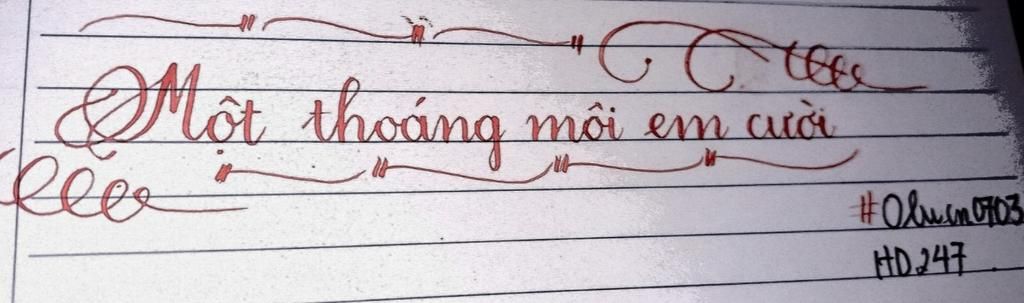 Một thoáng môi em cười
HD247